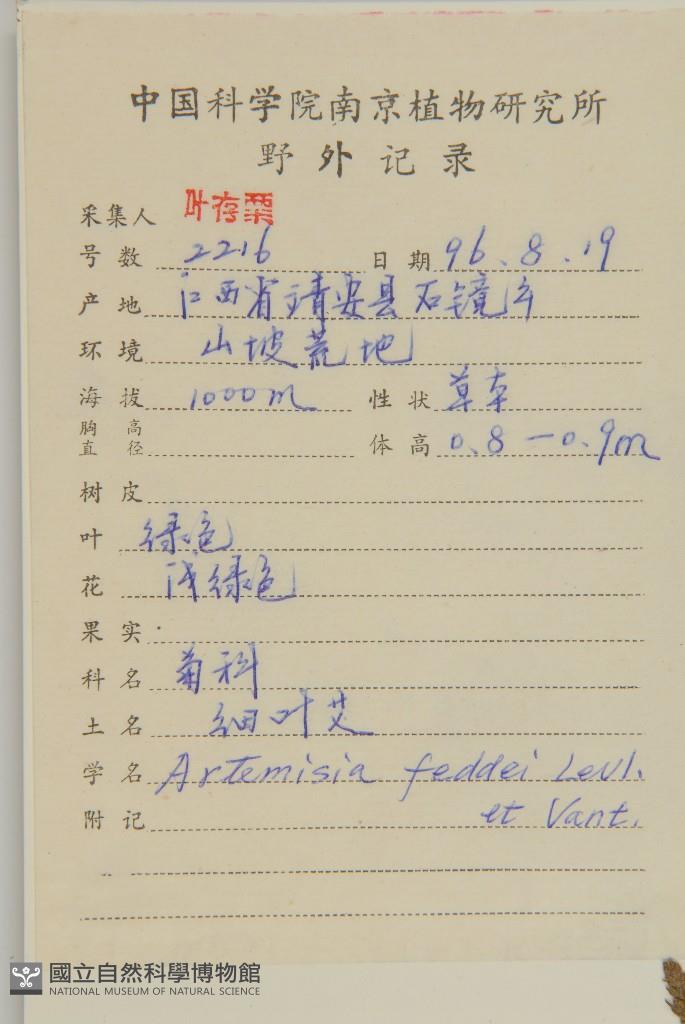 中国科学院南京植物研究所
野外记录
采集人 叶存粟
号数 2216 日期 96.8.19
产地 江西省靖安县石镜
环境 山坡荒地
海拔 1000m 性状 草本
胸高直径 体高 0.8-0.9m
树皮
叶 绿色
花 浅绿色
果实
科名 菊科
土名 细叶艾
学名 Artemisia feddei Levl.
附记 et Vant.
國立自然科學博物館
NATIONAL MUSEUM OF NATURAL SCIENCE